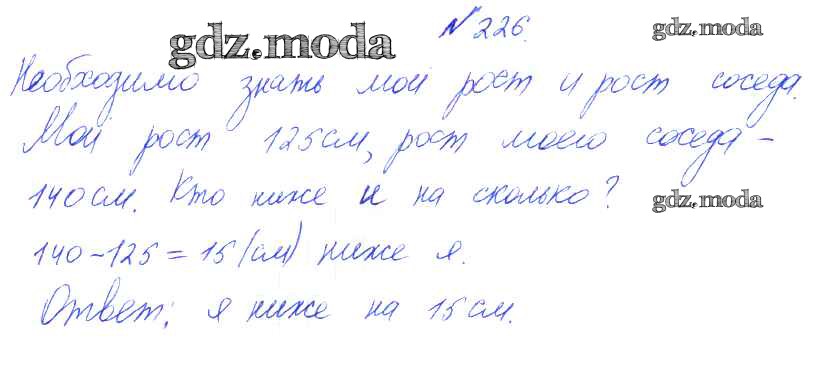 gdz.moda № 226. gdz.moda
Необходимо знать мой рост и рост соседа.
Мой рост 125см, рост моего соседа –
140см. Кто ниже и на сколько? gdz.moda
140-125=15(см) ниже я.
Ответ: я ниже на 15см.